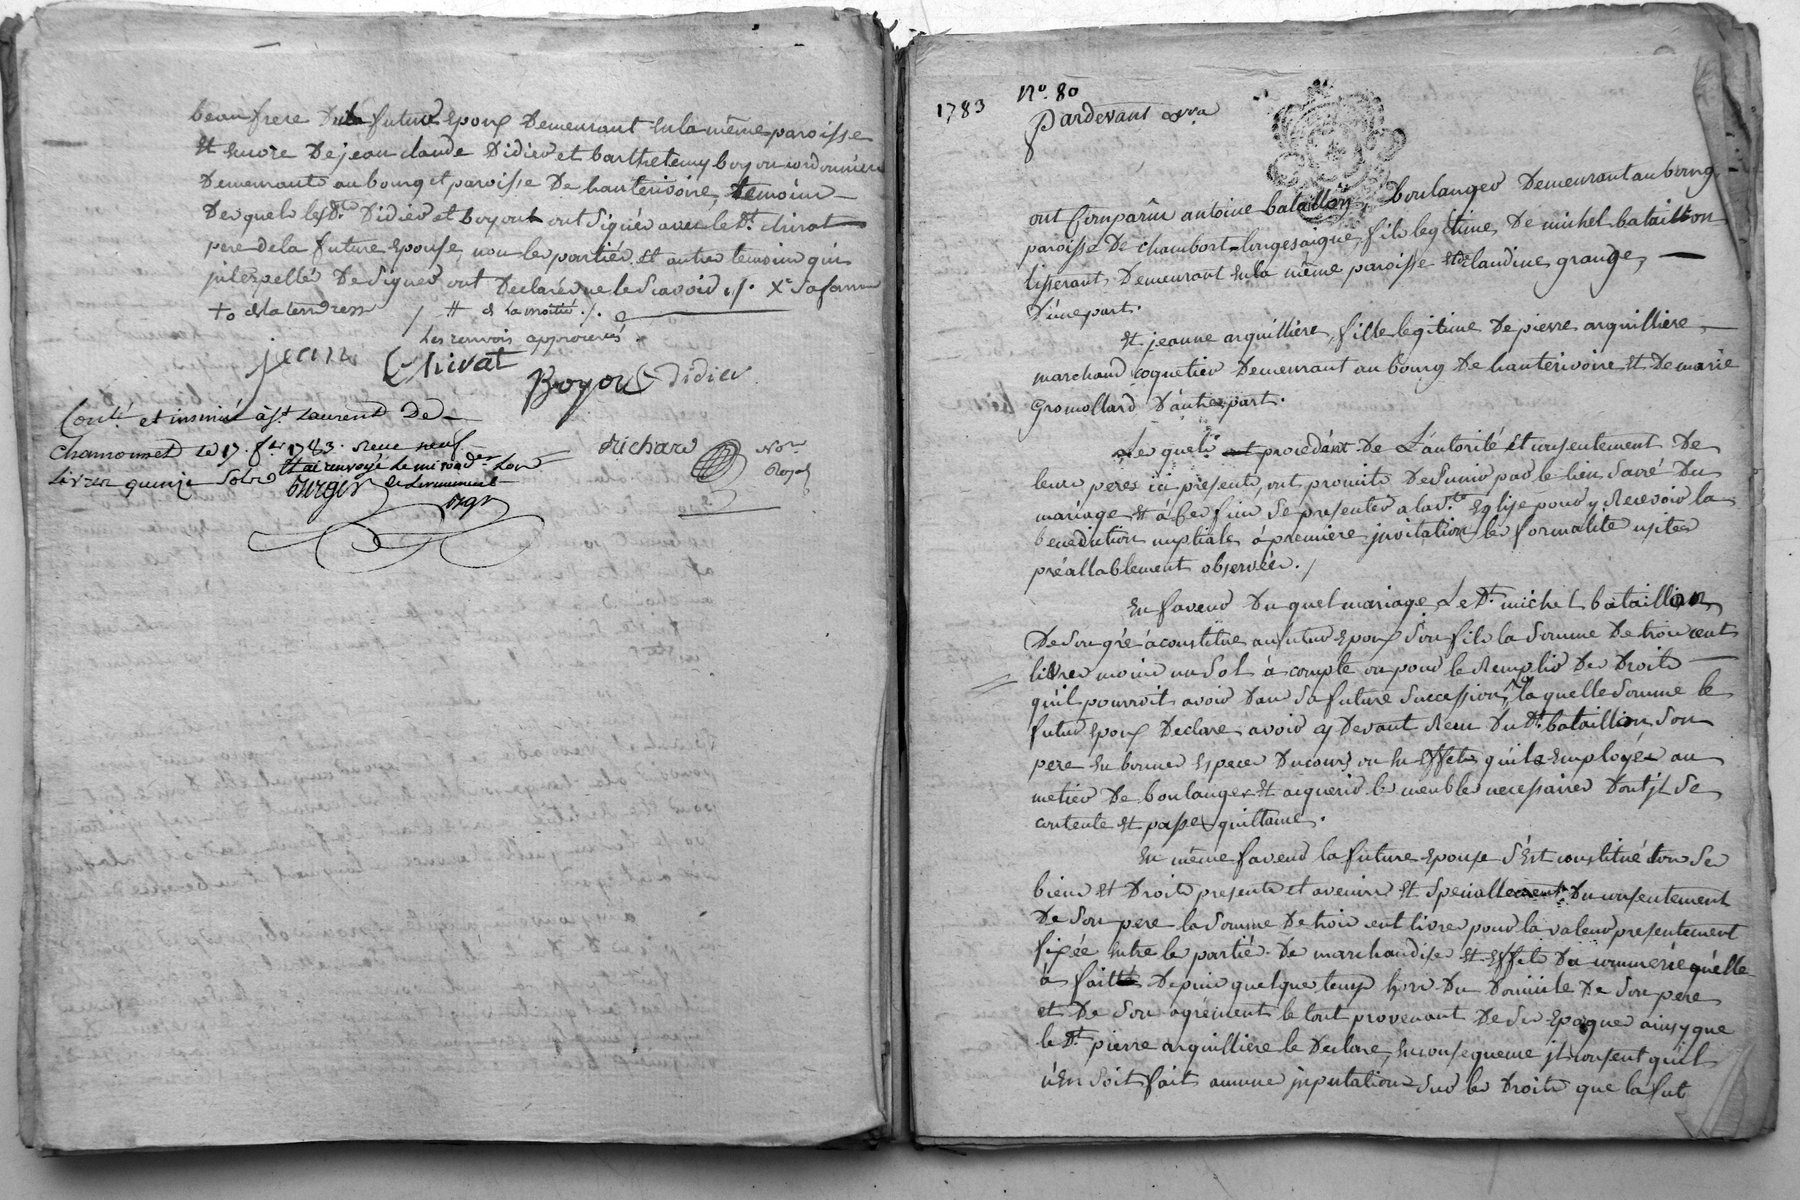 beau frere De la futur Epoux Demeurant en la même paroisse
Et encore De jean claude Didier et barthelemy boyou cordonniers
Demeurants au bourg et paroisse De hauterivoire, temoins
Desquels lesd. Didier et boyou ont signés avec le Dt. chirat
pere de la future Epouse, non les parties Et autres temoins qui
interpellés De signer ont Declarés ne le scavoir ./. X sa femme
to de la tendresse / # de la moitié ./.
Les renvois approuvés
jean Chirat
Boyou Didier
Conté. et insinué à st. Laurent De
Chamousset le 17. fer 1783. Reçu neuf
Livres quinze sols
Richard Not. Royal
1783
No. 80
Pardevant &ra
ont Comparûs antoine bataillon, boulanger Demeurant au bourg
paroisse De chambost-longesaigne, fils legitime De michel bataillon
tisserant Demeurant en la même paroisse et De claudine grange,
D'une part.
Et jeanne arquilliere, fille legitime De pierre arquilliere
marchand coquetier Demeurant au bourg De hauterivoire Et De marie
Gromollard D'autre part.
Lesquels procédant De L'autorité et consentement De
leurs peres ici presents, ont promis De s'unir par le lien sacré Du
mariage Et à Ces fins se presenter à la ste. Eglise pour y Recevoir la
benediction nuptiale à premiere invitation, les formalités usitées
préallablement observées./
En faveur Du quel mariage Le Dt. michel bataillon
De son gré à constitué au futur Epoux son fils la somme De trois cent
livres moins un sol à compte ou pour le Remplir Des Droits
qu'il pourroit avoir Dans sa future succession, la quelle somme le
futur Epoux Declare avoir cy Devant Reçu Du Dt. bataillon son
pere en bonnes Especes Du cours ou en Effets qu'il a Employés au
metier De boulanger Et acquerir les meubles necessaires Dont il se
contente Et passe quittance.
En même faveur la future Epouse s'Est constitué tous ses
biens Et Droits presents et avenirs Et specialement Du consentement
De son pere la somme De trois cent livres pour la valeur presentement
fixée entre les parties De marchandises Et Effets Du commerce qu'elle
à fait Depuis quelque temps hors Du Domicile De son pere
et De son agrément le tout provenant De ses Epargnes ainsy que
le Dt. pierre arquilliere le Declare, En consequence il consent qu'il
n'En soit fait aucune imputation sur les Droits que la fut